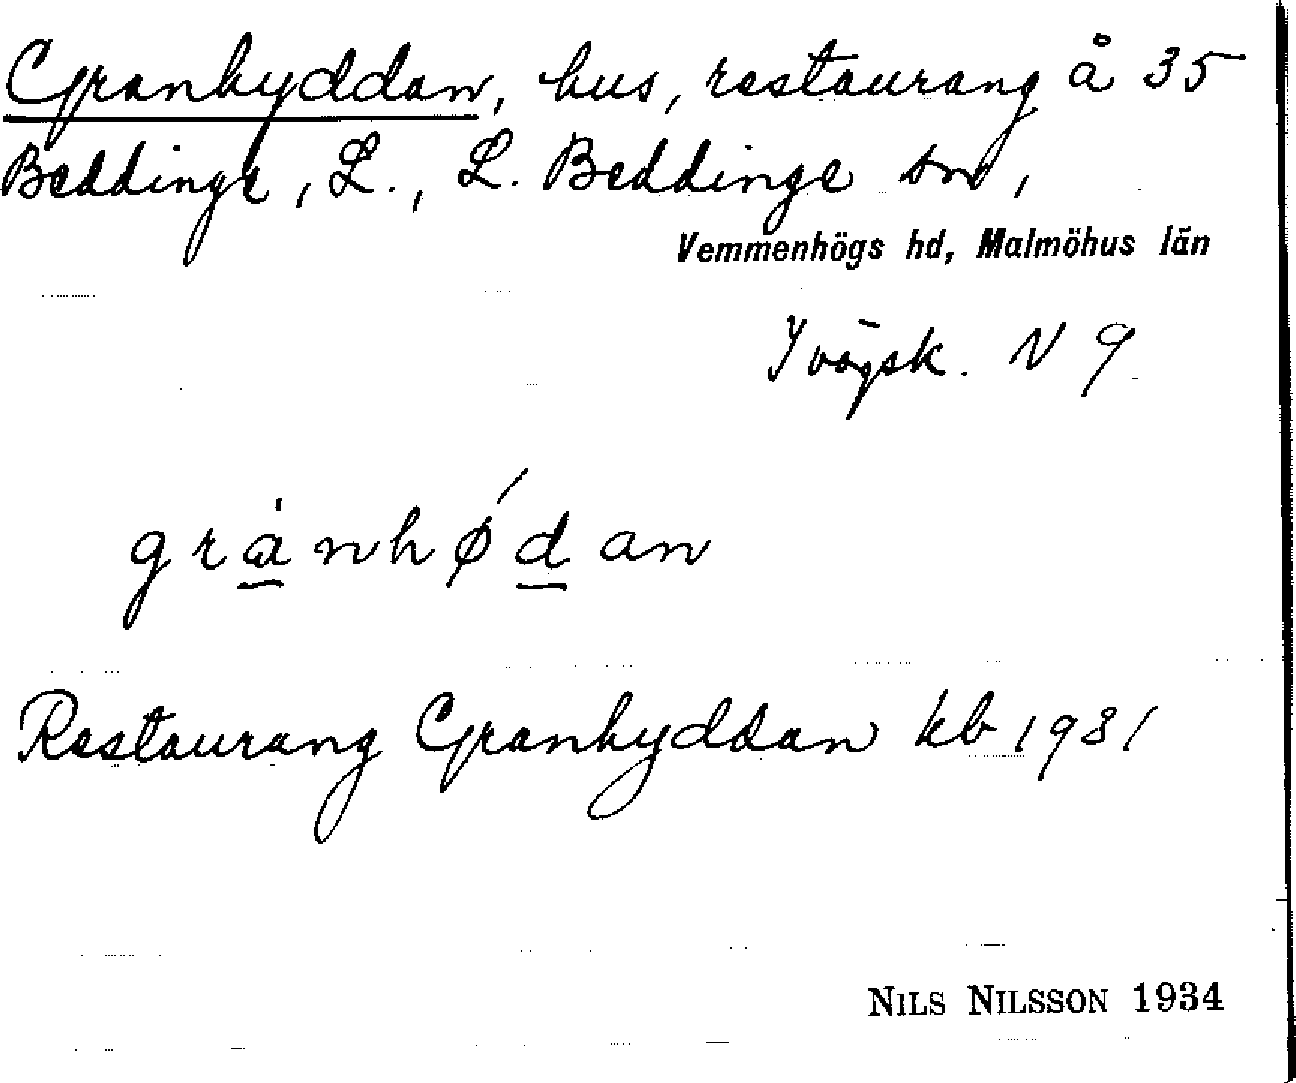 Granhyddan, hus, restaurang å 35
Beddinge, L., L. Beddinge sn,
Vemmenhögs hd, Malmöhus län
N 9
grànhǿdan
Restaurang Granhyddan kb 1931
NILS NILSSON 1934